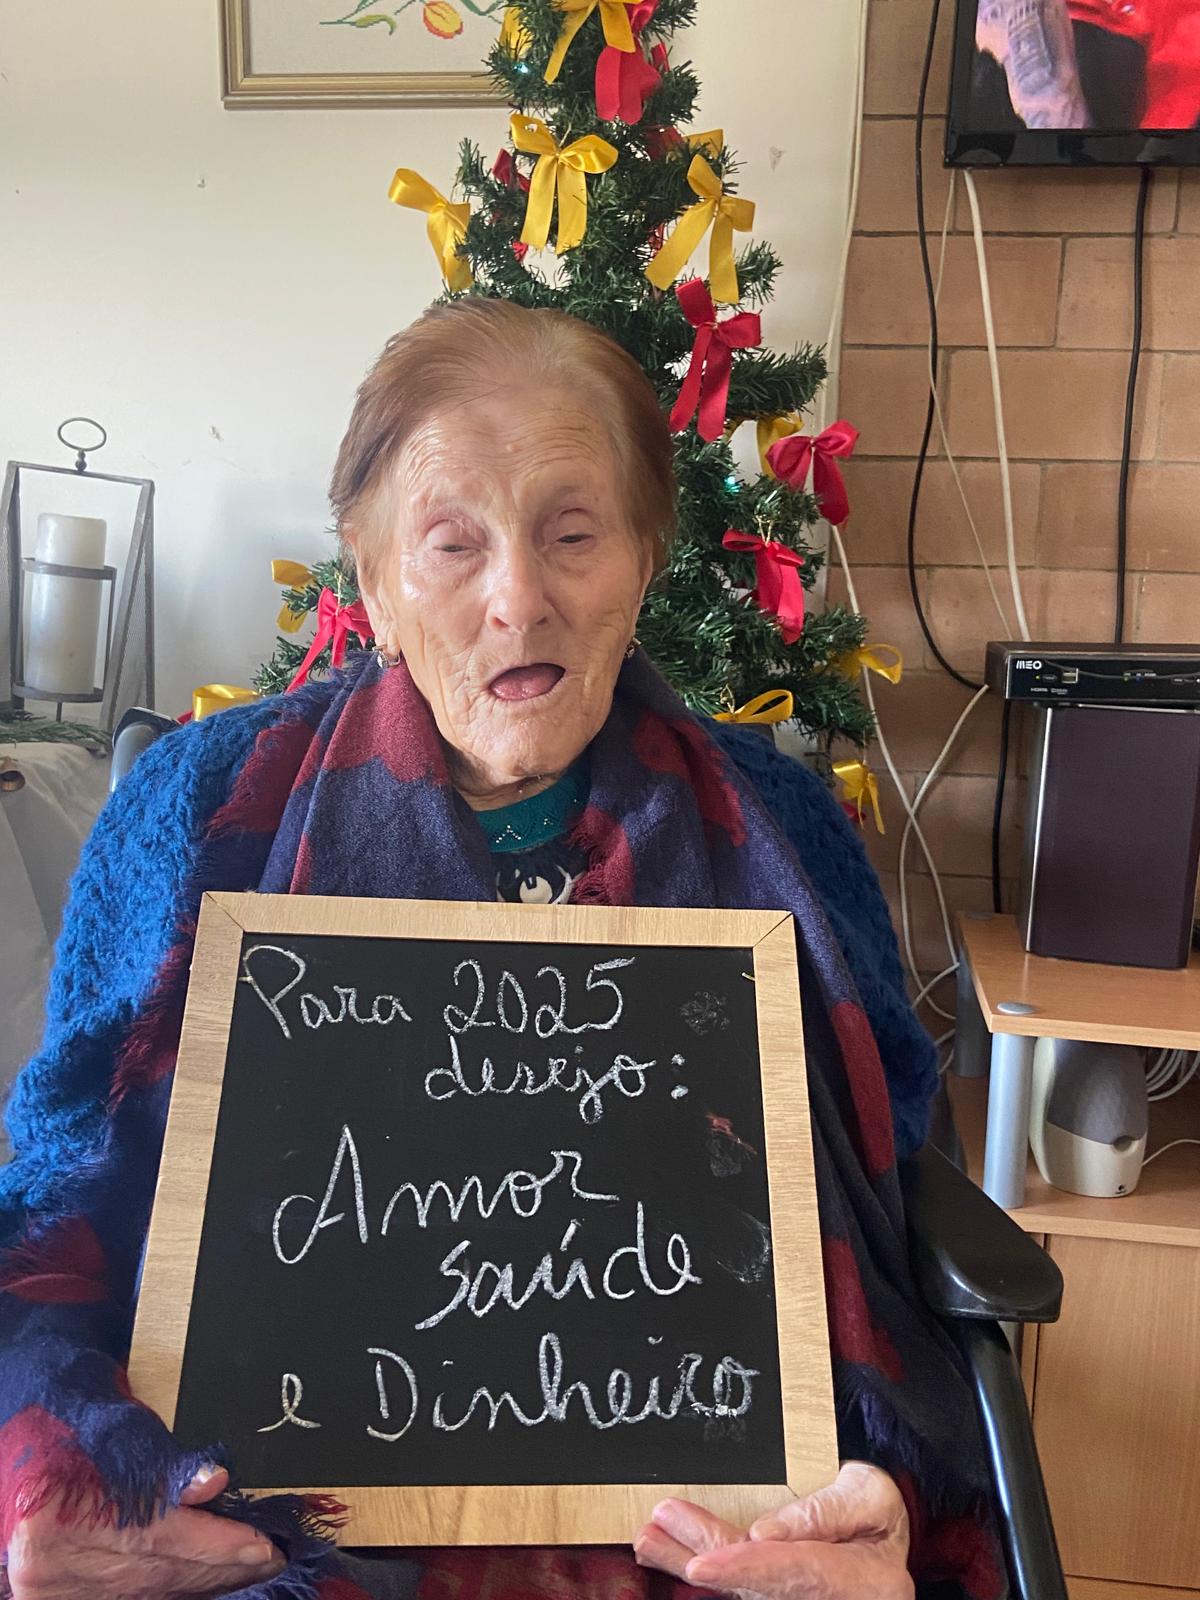 MEO
Para 2025
desejo:
Amor
saúde
e Dinheiro